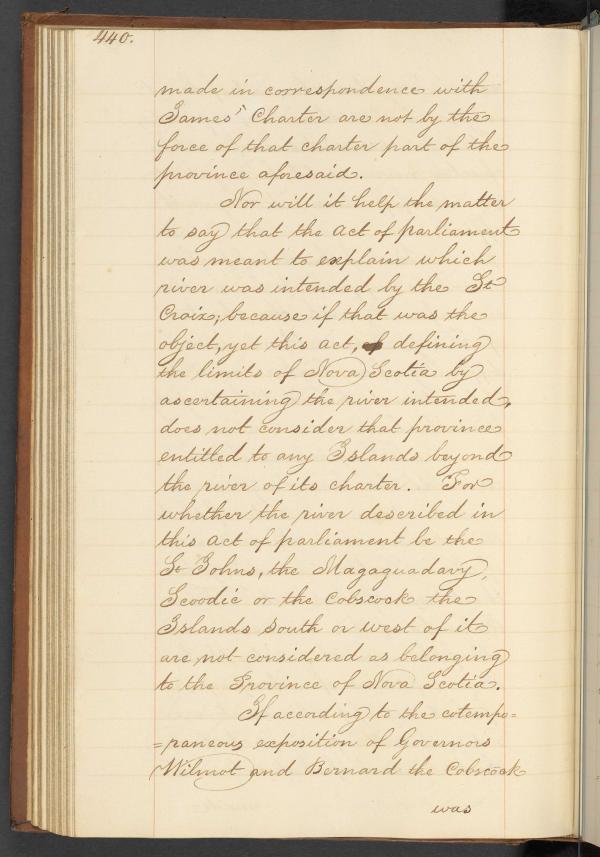 440.
made in correspondence with
James' Charter are not by the
force of that charter part of the
province aforesaid.
Nor will it help the matter
to say that the act of parliament
was meant to explain which
river was intended by the St
Croix; because if that was the
object, yet this act, defining
the limits of Nova Scotia by
ascertaining the river intended,
does not consider that province
entitled to any Islands beyond
the river of its charter. For
whether the river described in
this act of parliament be the
St Johns, the Magaguadavy,
Scoodic or the Cobscook the
Islands south or west of it
are not considered as belonging
to the Province of Nova Scotia.
If according to the cotempo=
=raneous exposition of Governors
Wilmot and Bernard the Cobscook
was